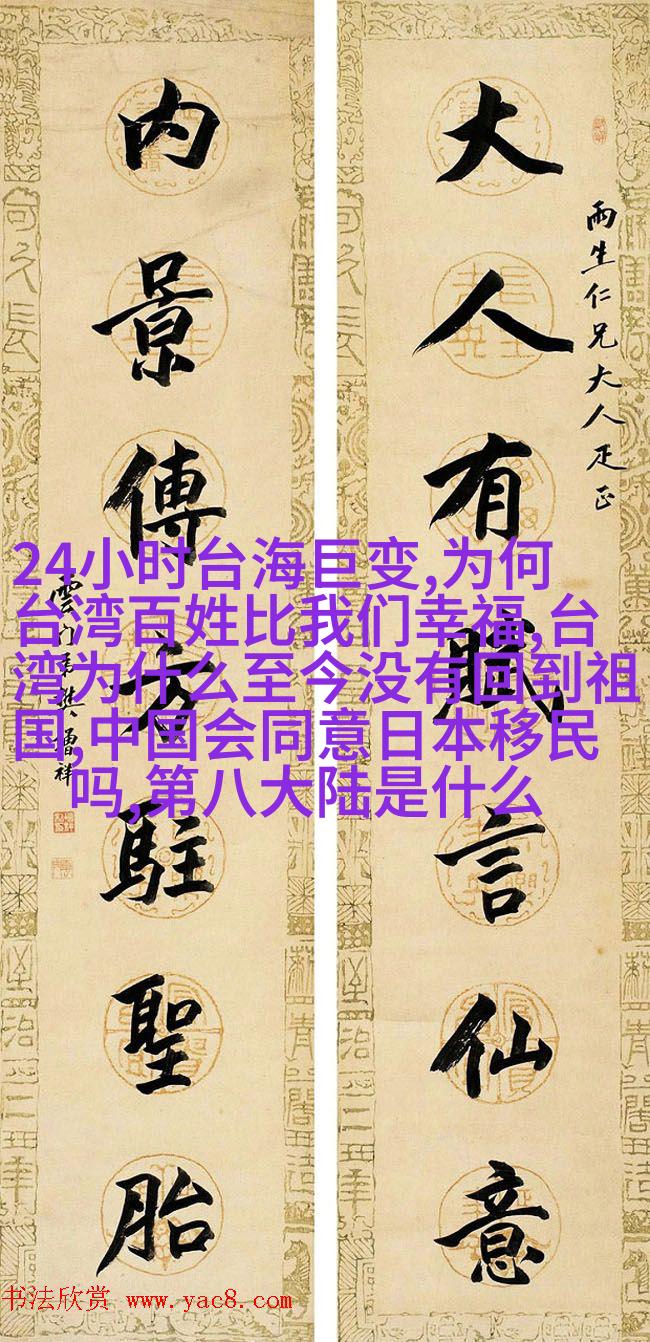 大人有賦言仙意
雨生仁兄大人疋正
内景傳方駐聖胎
雲門弟樊增祥
24小时台海巨变,为何
台湾百姓比我们幸福,台
湾为什么至今没有回到祖
国,中国会同意日本移民
吗,第八大陆是什么
书法欣赏 www.yac8.com